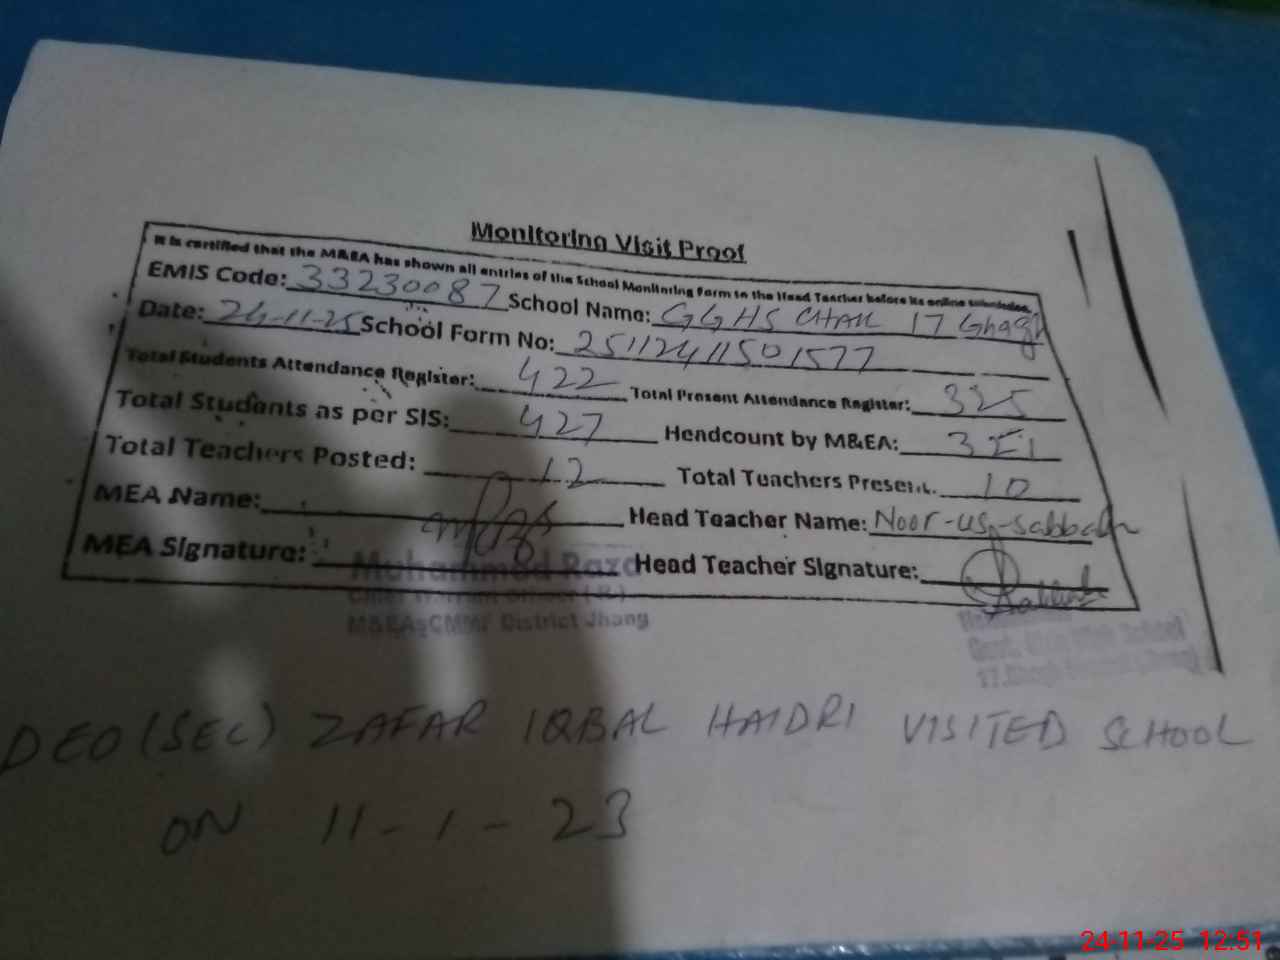 Monitoring Visit Proof
It is certified that the M&EA has shown all entries of the School Monitoring Form to the Head Teacher before its online submission.
EMIS Code: 33230087 School Name: GGHS CHAK 17 Ghagh
Date: 24-11-25 School Form No: 25112411501577
Total Students Attendance Register: 422 Total Present Attendance Register: 325
Total Students as per SIS: 427 Headcount by M&EA: 321
Total Teachers Posted: 12 Total Teachers Present. 10
MEA Name: Head Teacher Name: Noor-us-sabbah
MEA Signature: Head Teacher Signature:
Muhammad Raza
M&EA CMMF District Jhang
Govt. Girls High School
DEO (SEC) ZAFAR IQBAL HAIDRI VISITED SCHOOL
ON 11-1-23
24-11-25 12:51